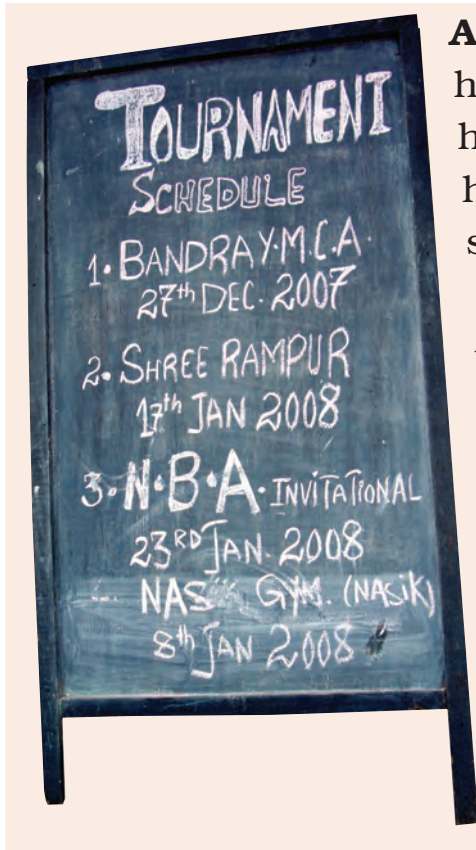 TOURNAMENT
SCHEDULE
1. BANDRA Y.M.C.A.
27th DEC. 2007
2. SHREE RAMPUR
17th JAN 2008
3. N.B.A. INVITATIONAL
23RD JAN. 2008
GYM. (NASIK)
8th JAN 2008
A
h
h
h
s